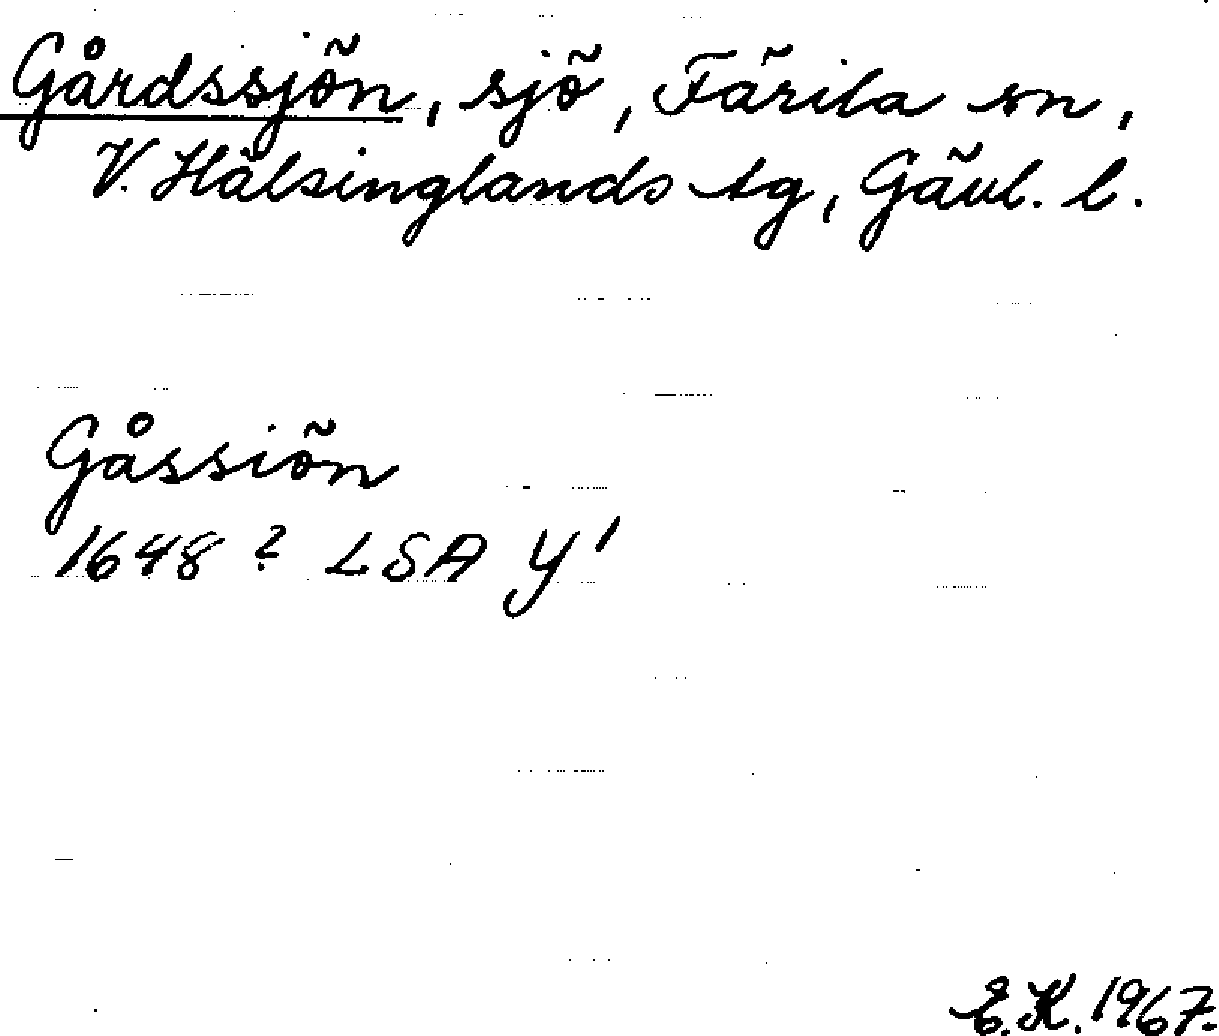 Gårdssjön, sjö, Färila sn,
V. Hälsinglands tg, Gävl. l.
Gåssiön
1648? LSA Y1
E.K. 1967.